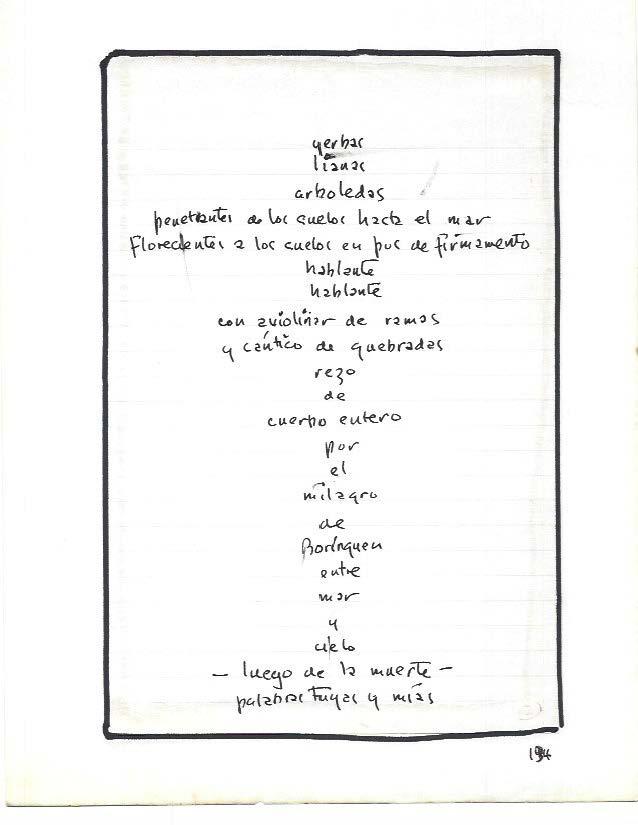 yerbas
lianas
arboledas
penetrantes de los suelos hasta el mar
florecientes a los suelos en pos de firmamento
hablante
hablante
con aviolinar de ramas
y cántico de quebradas
rezo
de
cuerpo entero
por
el
milagro
de
Borinquen
entre
mar
y
cielo
— luego de la muerte —
palabras tuyas y mías
194